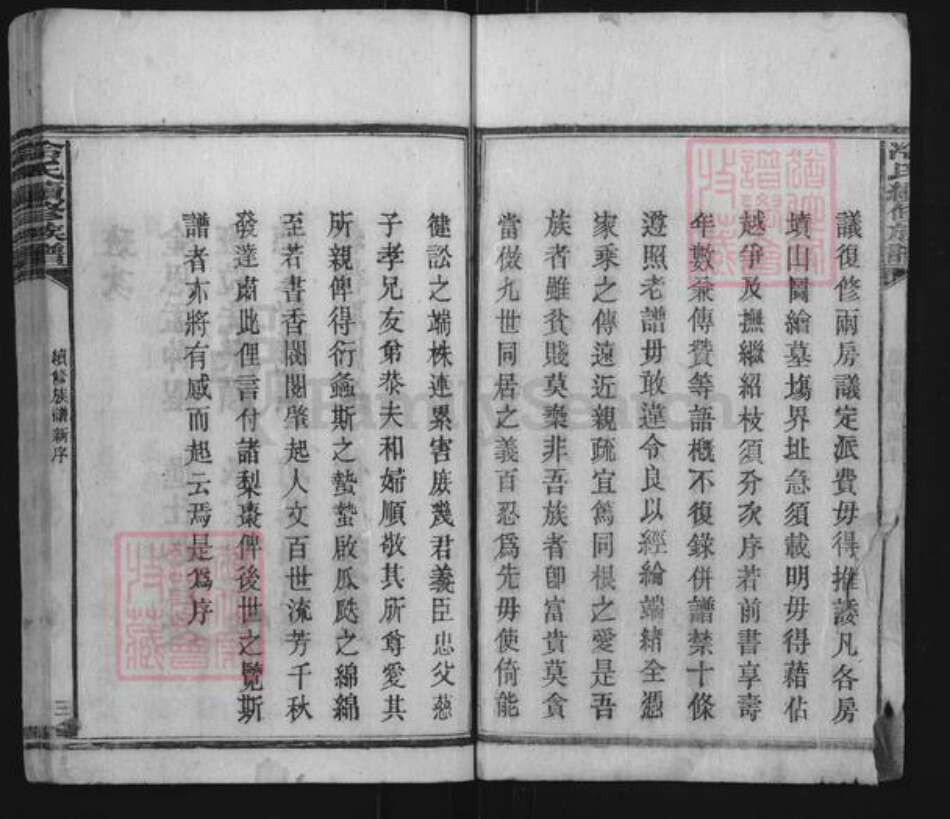 冷氏續修族譜
議復修兩房議定派費毋得推諉凡各房
墳山圖繪墓塲界址急須載明毋得藉佔
越爭及撫繼紹枝須分次序若前書享壽
年數兼傳贊等語概不復錄併譜禁十條
遵照老譜毋敢違令良以經綸端緒全憑
家乘之傳遠近親疏宜篤同根之愛是吾
族者雖貧賤莫棄非吾族者卽富貴莫貪
當倣九世同居之義百忍爲先毋使倚能
健訟之端株連累害庶幾君義臣忠父慈
子孝兄友弟恭夫和婦順敬其所尊愛其
所親俾得衍螽斯之蟄蟄啟瓜瓞之綿綿
至若書香閥閱肇起人文百世流芳千秋
發達肅此俚言付諸梨棗俾後世之覽斯
譜者亦將有感而起云焉是爲序
冷氏續修族譜
續修族譜新序
三
FamilySearch